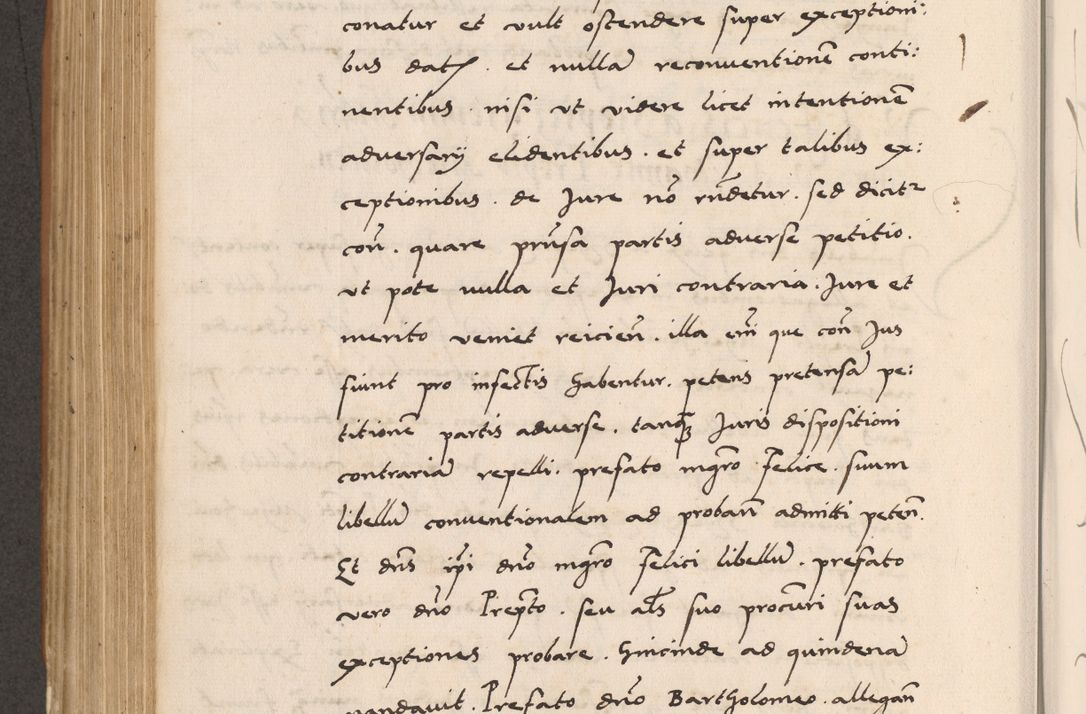 conatur et vult ostendere super exceptioni:
bus dat. et nullā reconventionē conti:
nentibus. nisi ut videre licet intentionē
adversarij elidentibus. et super talibus ex:
ceptionibus. de Jure nō rñdetur. sed dicitr
coñ. quare prñsa partis adverse petitio.
ut pote nulla et Juri contraria. Jure et
merito veniet reicieñ. illa em̄ que coñ Jus
fiunt pro infectis habentur. petens pretensā pe:
titionē partis adverse. tanq3 Juris dispositioni
contrariā repelli. prefato mgr̄o Felice. suum
libellū conventionalem ad probañ admitti peteñ.
Et dñs ip̄i dn̄o mgr̄o Felici libellū. prefato
vero dn̄o Prep̄to. seu als̄ suo procūri suas
exceptiones probare. hincinde ad quindenā
mandavit. Prefato dn̄o Bartholomeo. allegañ